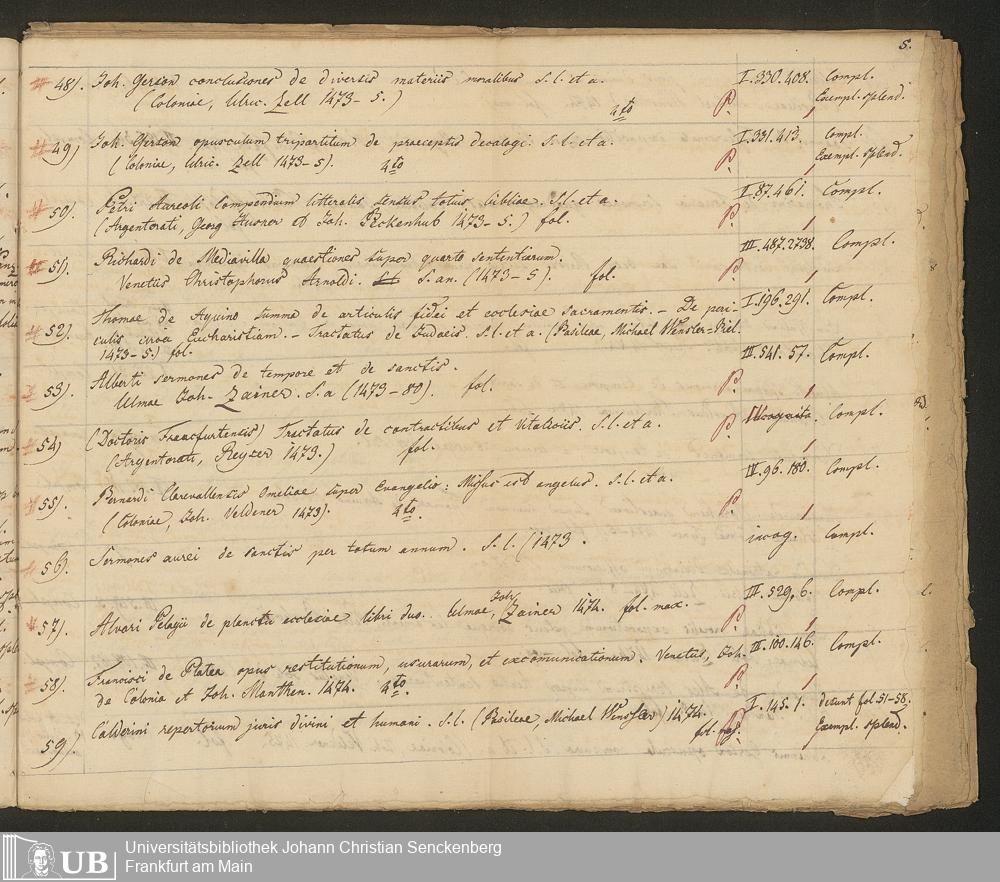 5.
48). Joh. Gerson conclusiones de diversis materiis moralibus S. l. et a. I. 330. 408. Compl.
(Coloniae, Ulric. Zell 1473-5.) 4to P. Exempl. splend.
49) Joh. Gerson opusculum tripartitum de praeceptis decalogi. S. l. et a. I. 331. 413. Compl.
(Coloniae, Ulric. Zell 1473-5). 4to P. Exempl. splend.
50). Petri Aureoli Compendium litteralis sensus totius bibliae. S. l. et a. I. 87. 461. Compl.
(Argentorati, Georg Husner et Joh. Beckenhub 1473-5.) fol. P.
51). Richardi de Mediavilla quaestiones super quarto sententiarum. III. 487. 2738. Compl.
Venetus Christophorus Arnoldi. S. an. (1473-5). fol. P.
52). Thomae de Aquino Summa de articulis fidei et ecclesiae sacramentis. - De peri- I. 196. 291. Compl.
culis circa Eucharistiam. - Tractatus de Iudaeis. S. l. et a. (Basileae, Michael Wensler =
1473-5.) fol.
53). Alberti sermones de tempore et de sanctis. III. 541. 57. Compl.
Ulmae Joh. Zainer. S. a (1473-80). fol. P.
54) (Doctoris Francfurtensis) Tractatus de contractibus et vitaliciis. S. l. et a. Incognita. Compl.
(Argentorati, Reyser 1473.) fol. P.
55). Bernardi Clarevallensis Omeliae super Evangelio: Missus est angelus. S. l. et a. IV. 96. 180. Compl.
(Coloniae, Joh. Veldener 1473). 4to. P.
56). Sermones aurei de sanctis per totum annum. S. l. (1473. incog. Compl.
57). Alvari Pelagii de planctu ecclesiae libri duo. Ulmae, Joh. Zainer 1474. fol. max. P. III. 529. 6. Compl.
58). Francisci de Platea opus restitutionum, usurarum, et excomunicationum. Venetus, Joh. III. 100. 146. Compl.
de Colonia et Joh. Manthen. 1474. 4to. P.
59). Calderini repertorium juris divini et humani. S. l. (Basileae, Michael Wenssler) 1474. I. 145. 1. desunt fol. 51-58.
fol. Exempl. splend.
UB
Universitätsbibliothek Johann Christian Senckenberg
Frankfurt am Main